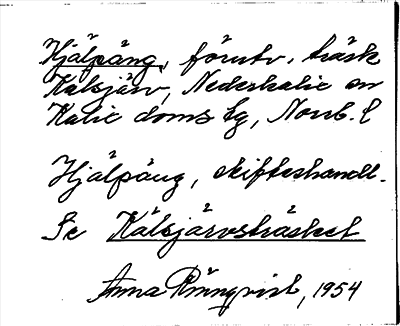 Hjälpäng, förutv. träsk
Kälsjärv, Nederkalix sn
Kalix doms lg, Norrb. l
Hjälpäng, skifteshandl.
Se Kälsjärvsträsket
Anna Rönnqvist, 1954